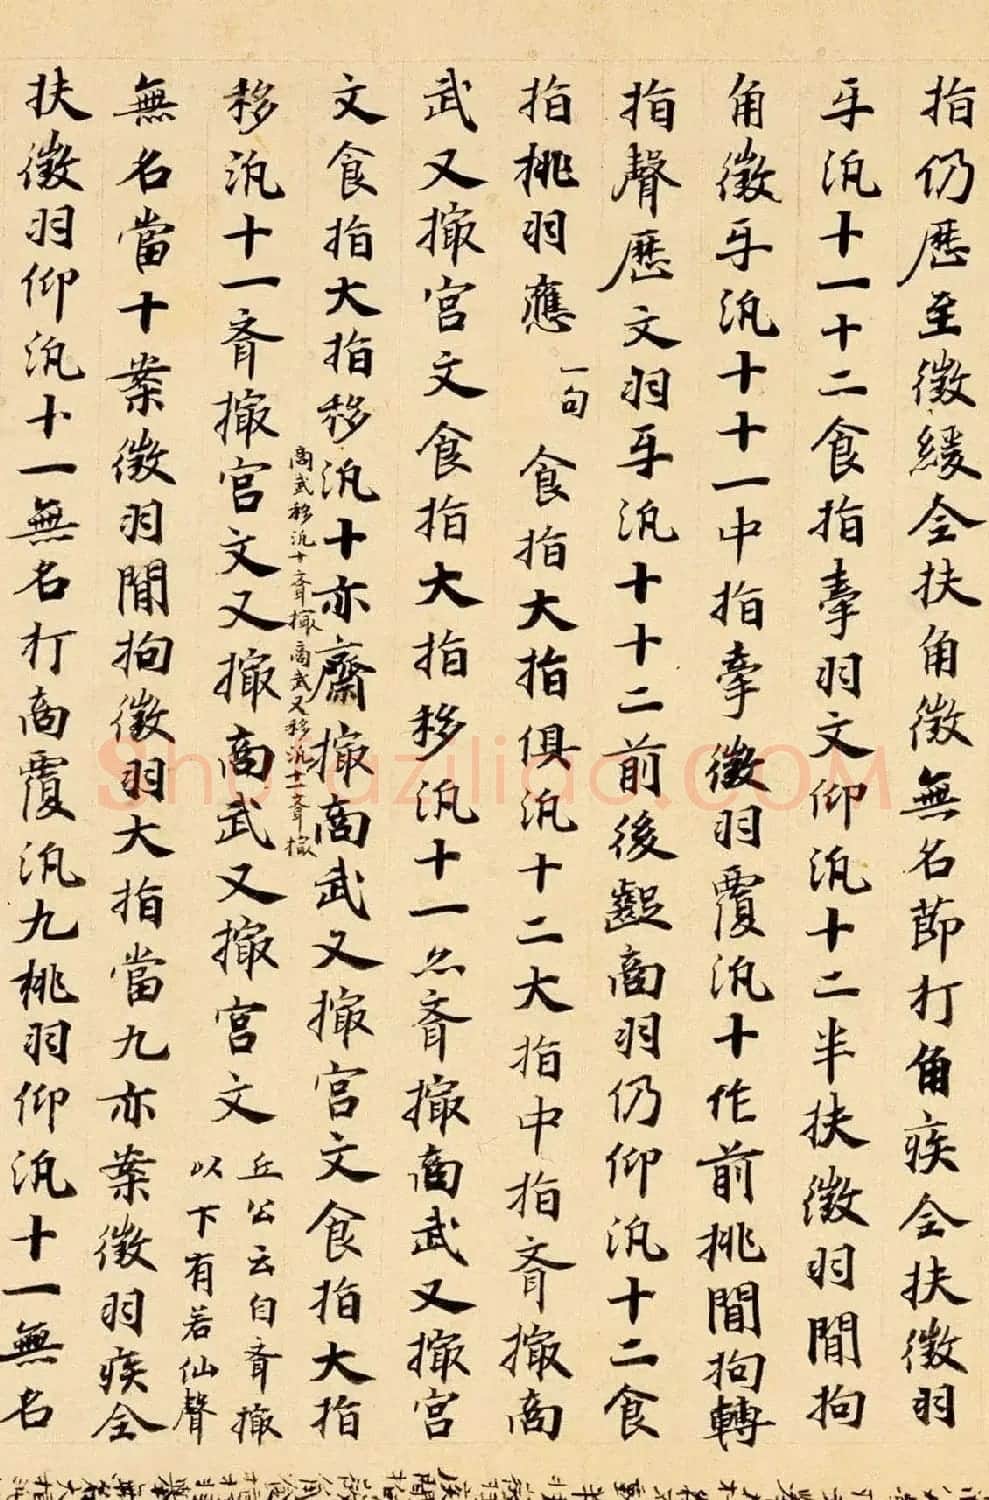 指仍歷至徵緩全扶角徵無名節打角疾全扶徵羽
牙汎十一十二食指牽羽文仰汎十二半扶徵羽閒拘
角徵牙汎十十一中指牽徵羽覆汎十作前挑閒拘轉
指聲歷文羽牙汎十十二前後齪商羽仍仰汎十二食
指挑羽應一句食指大指俱汎十二大指中指齊撮商
武又撮宮文食指大指移汎十一亦齊撮商武又撮宮
文食指大指移汎十亦齋撮商武又撮宮文食指大指
商武移汎十齊撮商武又移汎十一齊撮
移汎十一齊撮宮文又撮商武又撮宮文
丘公云自齊撮
以下有若仙聲
無名當十案徵羽閒拘徵羽大指當九亦案徵羽疾全
扶徵羽仰汎十一無名打商覆汎九挑羽仰汎十一無名
shufaziliao.COM